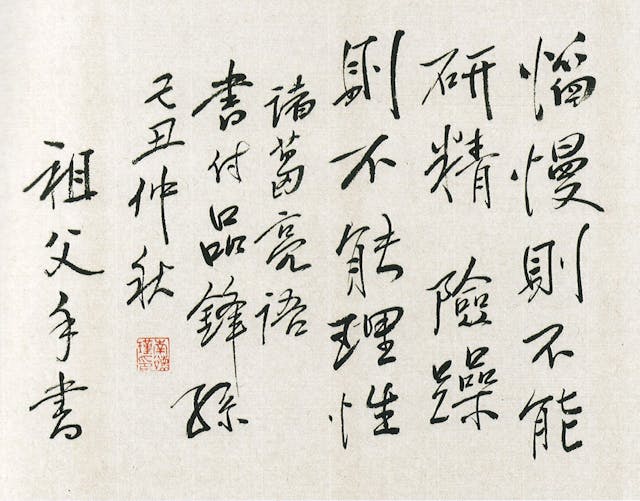 慆慢則不能
研精 險躁
則不能理性
諸葛亮語
書付品鋒孫
己丑仲秋
祖父手書
南懷瑾印